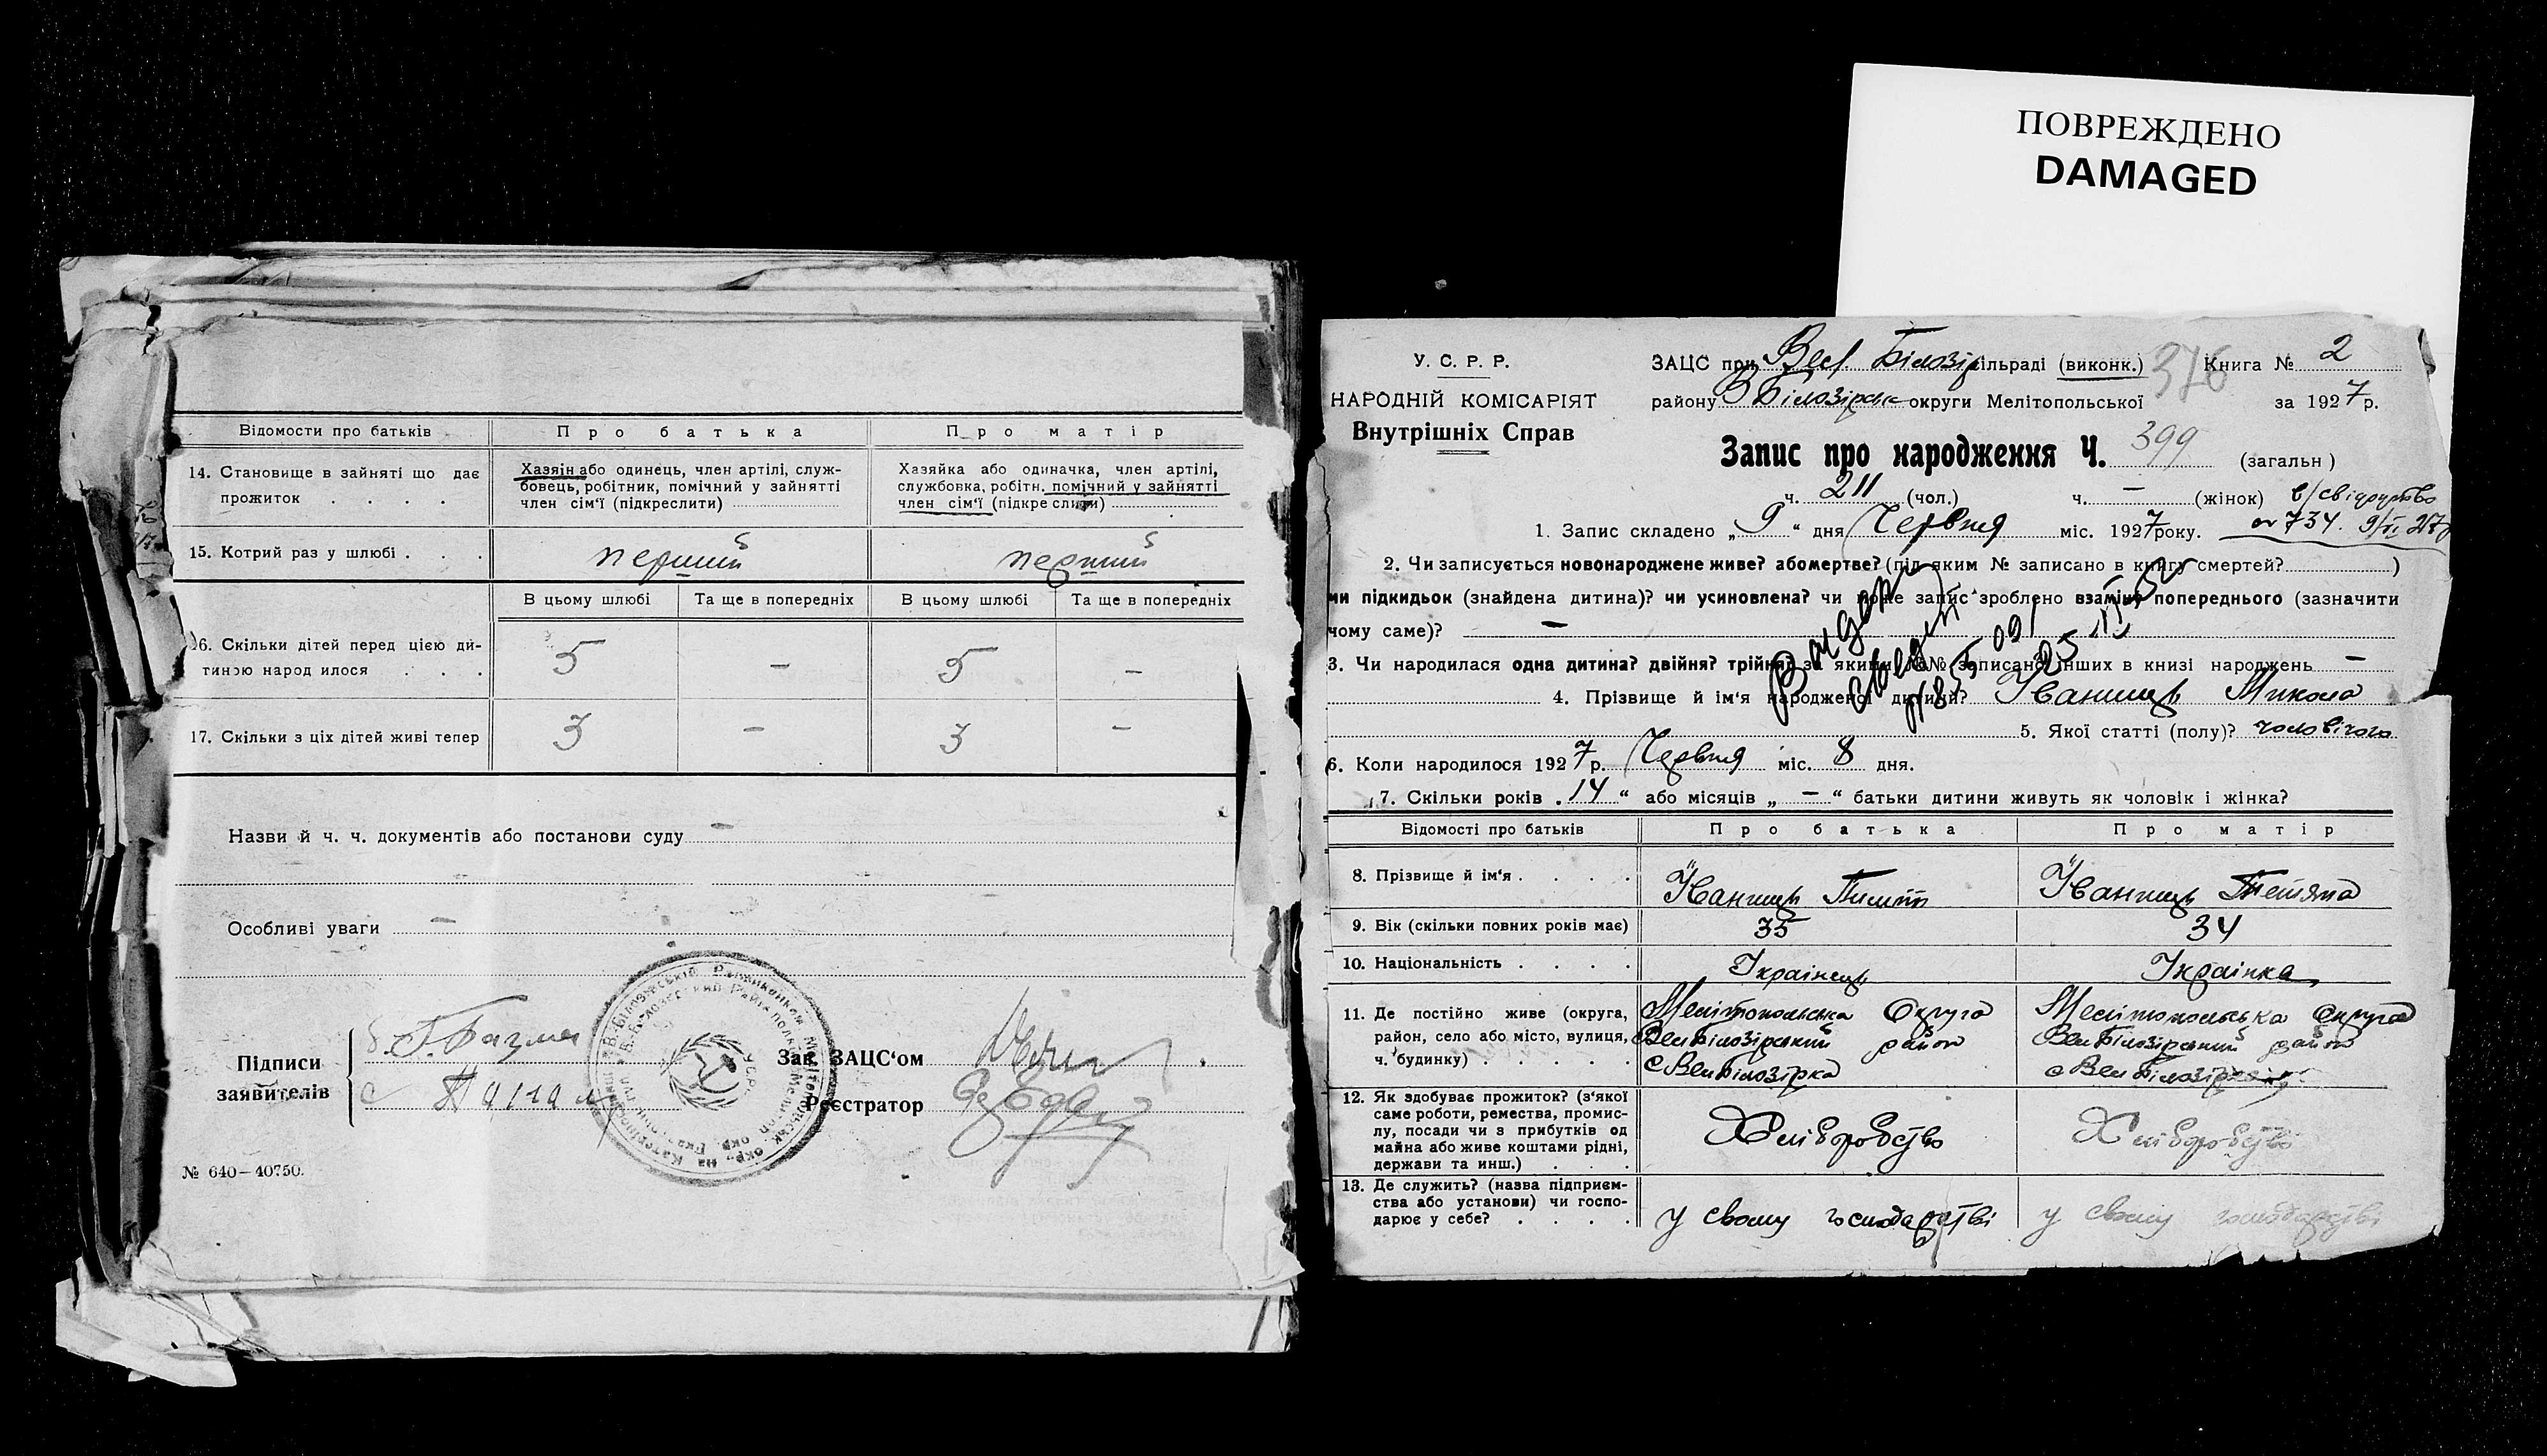 ПОВРЕЖДЕНО
DAMAGED
Відомости про батьків Про батька Про матір
14. Становище в зайняті що дає прожиток . . . .
Хазяїн або одинець, член артілі, служ-
бовець, робітник, помічний у зайнятті
член сім'ї (підкреслити)
Хазяйка або одиначка, член артілі,
службовка, робітн. помічний у зайнятті
член сім'ї (підкреслити)
15. Котрий раз у шлюбі . . . перший перший
В цьому шлюбі Та ще в попередніх В цьому шлюбі Та ще в попередніх
16. Скільки дітей перед цією ди-
тиною народ илося . . . 5 — 5 —
17. Скільки з ціх дітей живі тепер 3 — 3 —
Назви й ч. ч. документів або постанови суду —
Особливі уваги —
Підписи
заявителів
Зав. ЗАЦС'ом
Реєстратор
№ 640—40750.
У. С. Р. Р.
НАРОДНІЙ КОМІСАРІЯТ
Внутрішніх Справ
ЗАЦС при Вел. Білозір ільраді (виконк.) 376 Книга № 2
району В Білозірськ округи Мелітопольської за 1927 р.
Запис про народження Ч. 399 (загальн)
ч. 211 (чол.) ч. — (жінок)
1. Запис складено „9“ дня Червня міс. 1927 року. 734. 9/VI 27
2. Чи записується новонароджене живе? або мертве? (під яким № записано в книгу смертей? )
чи підкидьок (знайдена дитина)? чи усиновлена? чи може запис зроблено взаміну попереднього (зазначити
чому саме)? —
3. Чи народилася одна дитина? двійня? трійня? за якими №№ записано інших в книзі народжень —
4. Прізвище й ім'я народженої дитини? Іванищь Микола
5. Якої статті (полу)? чоловічого
6. Коли народилося 1927 р. Червня міс. 8 дня.
7. Скільки років „14“ або місяців „—“ батьки дитини живуть як чоловік і жінка?
Відомості про батьків Про батька Про матір
8. Прізвище й ім'я . . . . Іванищь Пилип Іванищь Тетяна
9. Вік (скільки повних років має) 35 34
10. Національність . . . . Українець Українка
11. Де постійно живе (округа,
район, село або місто, вулиця,
ч. будинку) . . . .
Мелітопольська Округа
Вел Білозірський район
с Вел Білозірка
Мелітопольська Округа
Вел Білозірський район
с Вел Білозірка
12. Як здобуває прожиток? (з'якої
саме роботи, ремества, промис-
лу, посади чи з прибутків од
майна або живе коштами рідні,
держави та инш.) . . .
Хліборобство Хліборобство
13. Де служить? (назва підприєм-
ства або установи) чи госпо-
дарює у себе? . . . .
у свому господарстві у свому господарстві